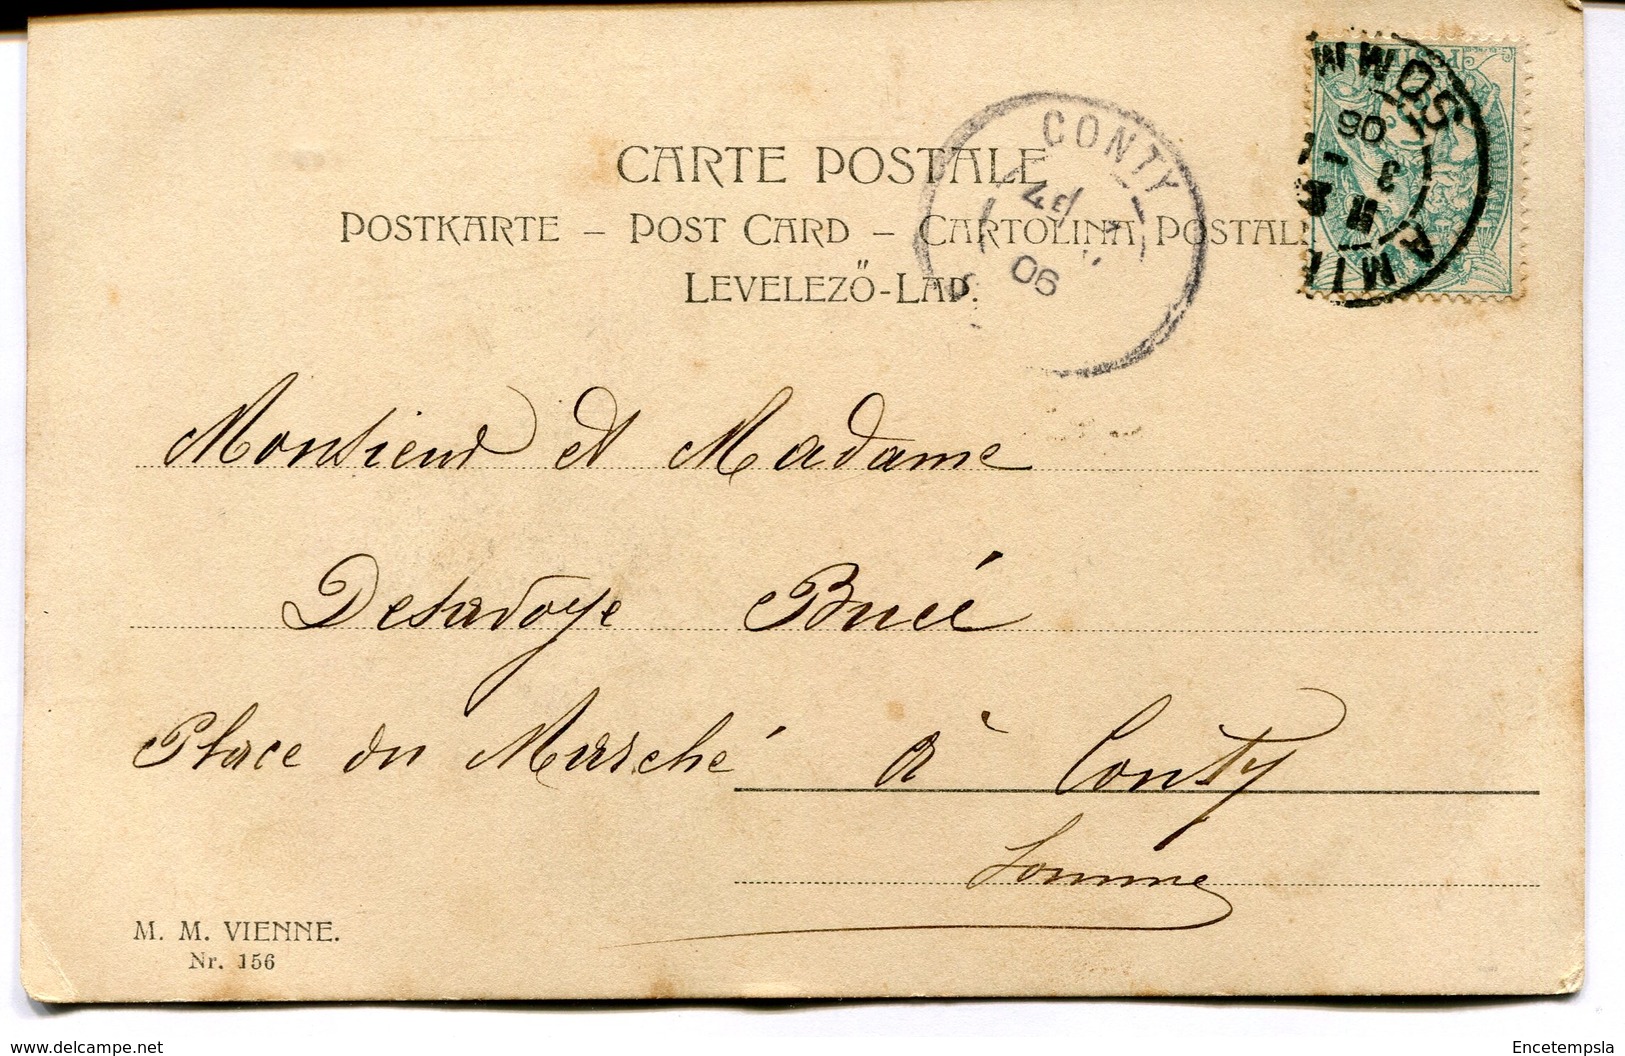 CARTE POSTALE
POSTKARTE – POST CARD – CARTOLINA POSTAL
LEVELEZŐ-LAP.
CONTY
06
SOMM
06
AMI
Monsieur et Madame
Desavoye Bucé
Place du Marché à Conty
Somme
M. M. VIENNE.
Nr. 156
www.delcampe.net
Encetempsla